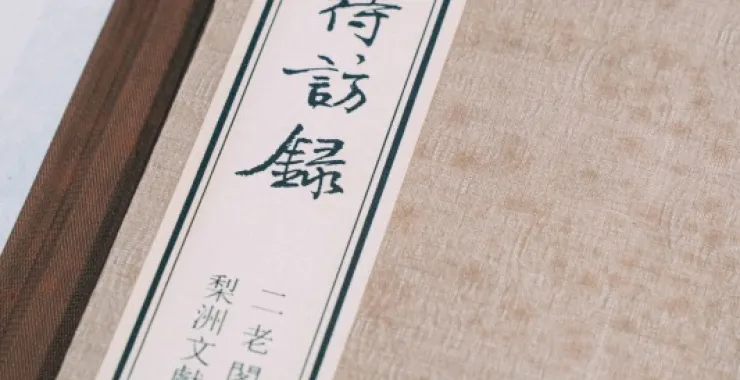 待訪録
二老閣
梨洲文獻